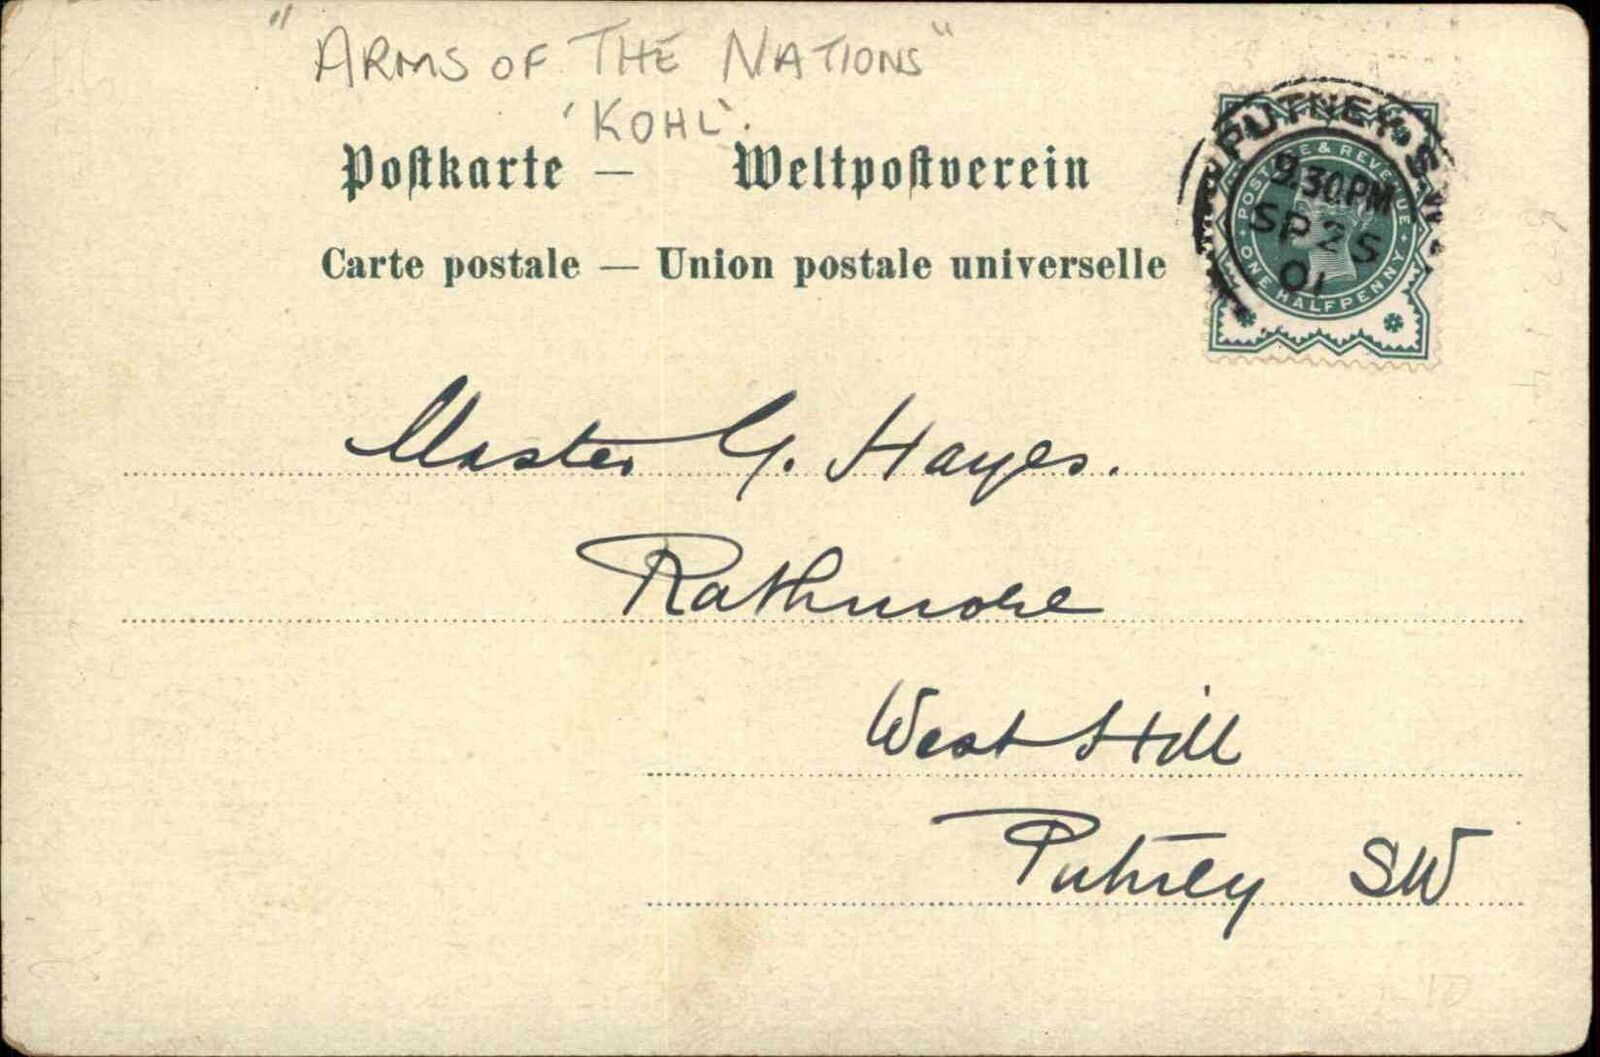 "ARMS OF THE NATIONS"
'KOHL'.
Postkarte — Weltpostverein
Carte postale — Union postale universelle
PUTNEY. S.W.
9.30PM
SP 25
01
POSTAGE & REVENUE
ONE HALFPENNY
Master G. Hayes.
Rathmore
West Hill
Putney SW